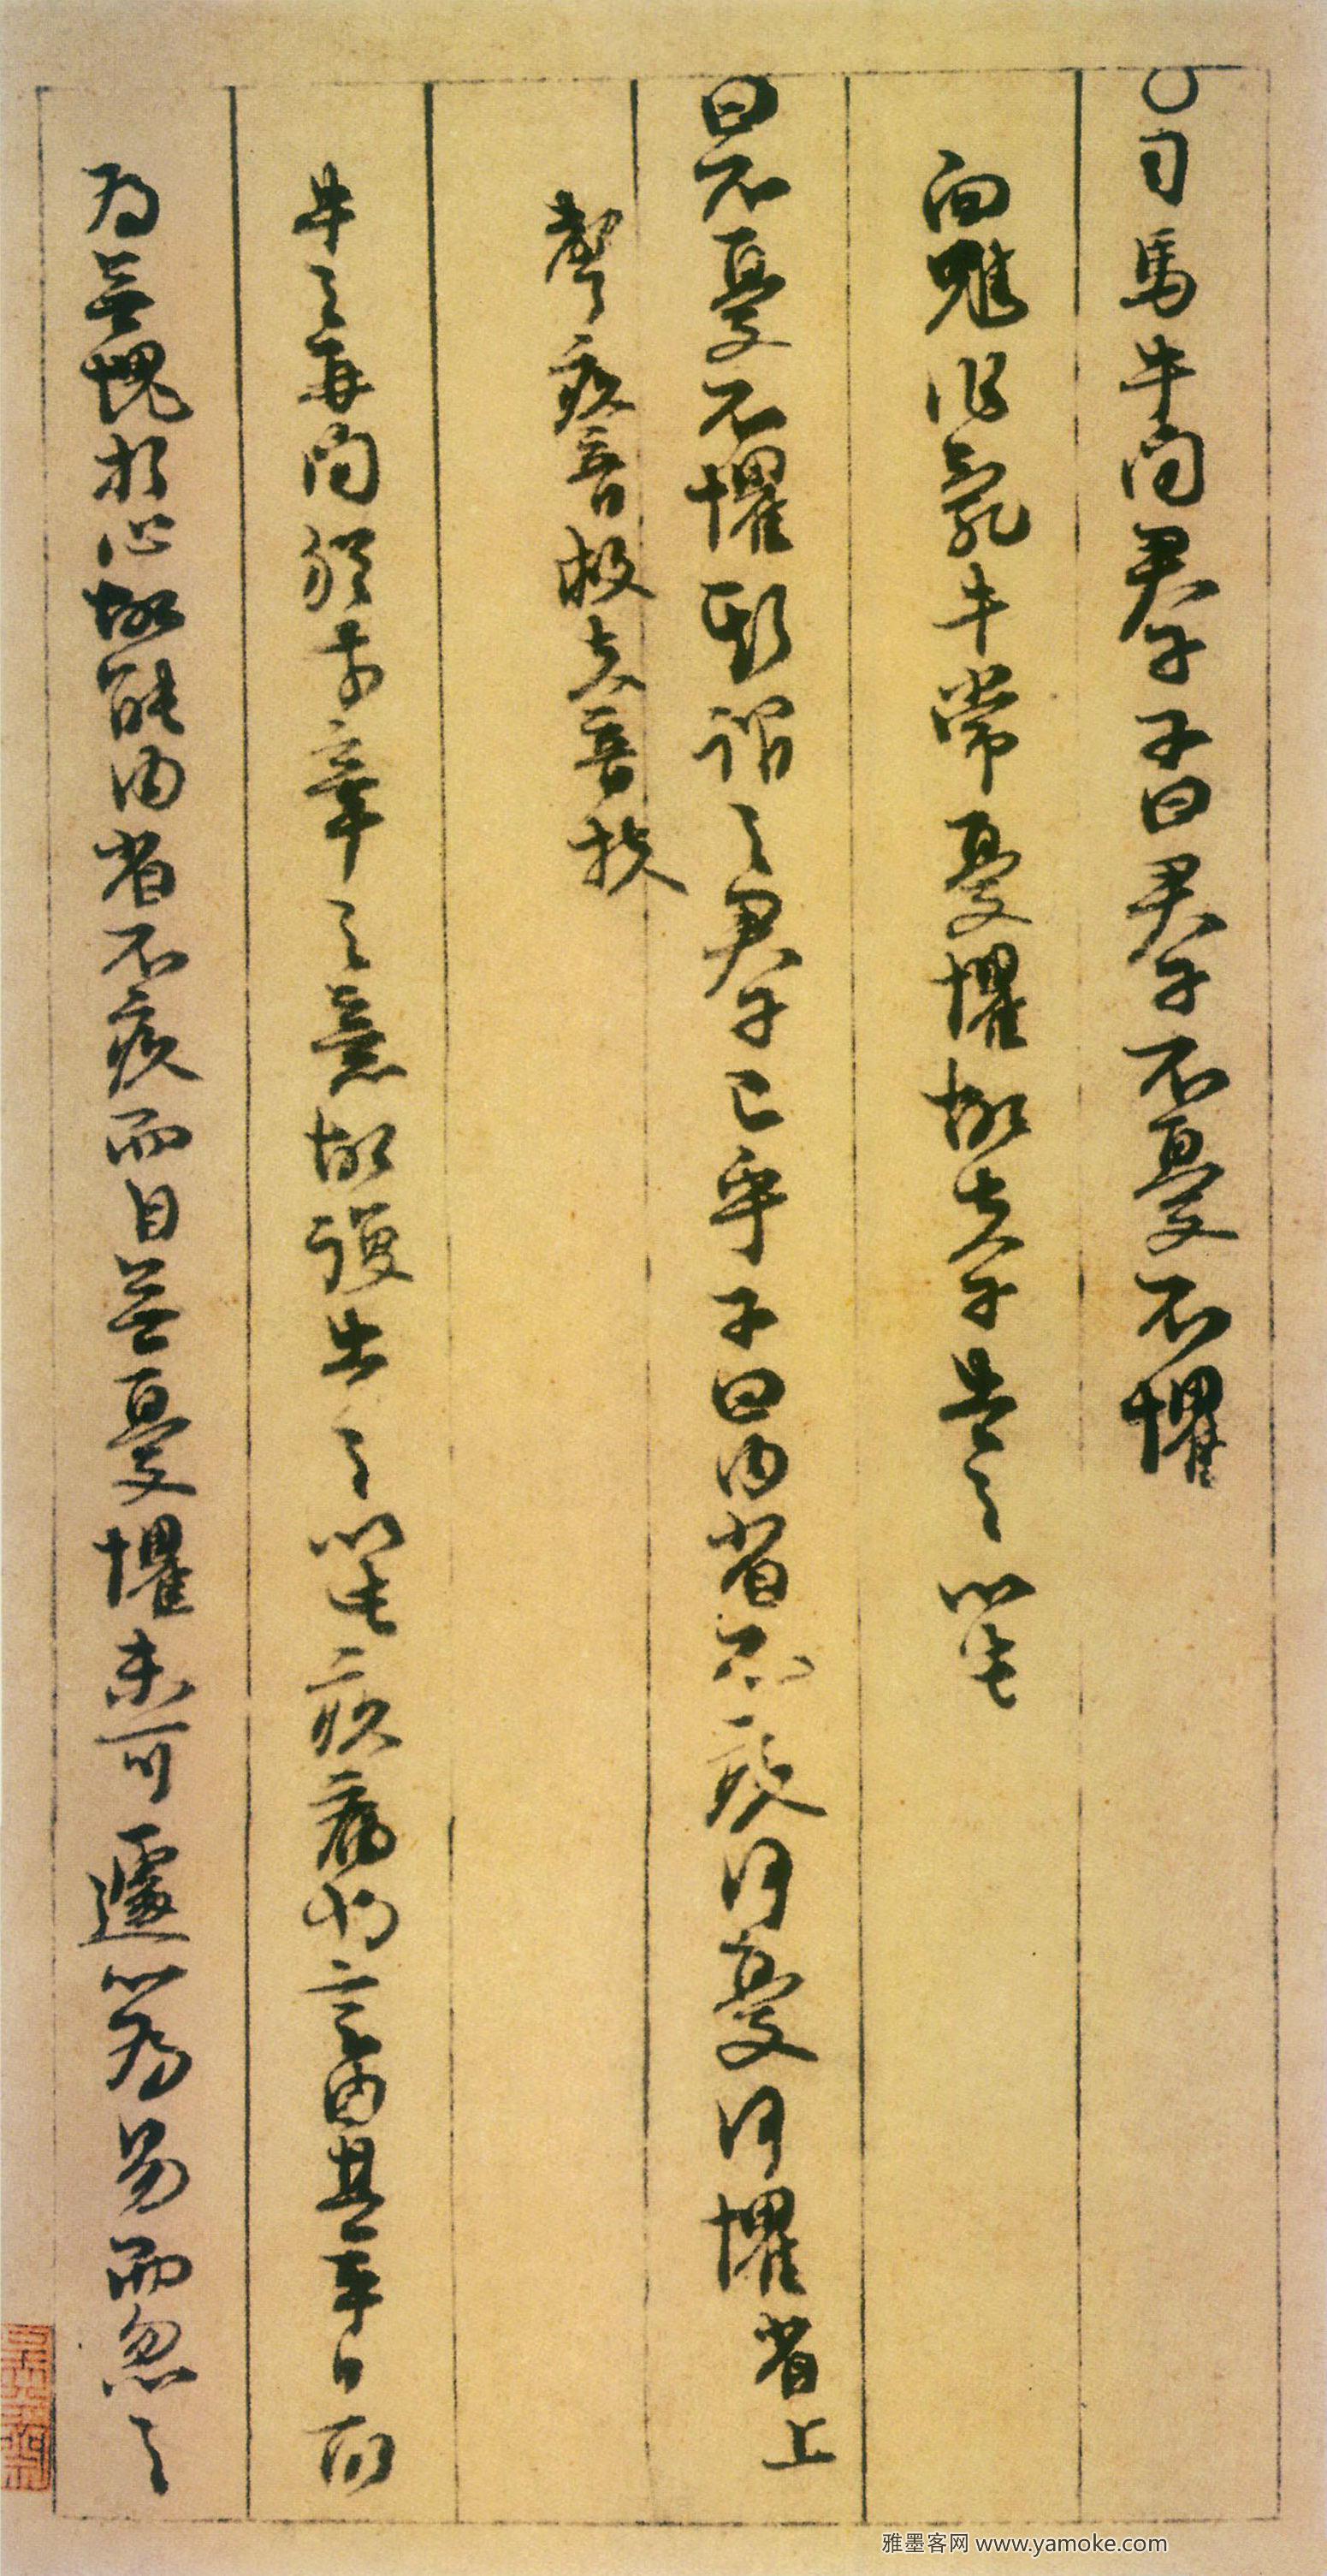 ○司馬牛問君子子曰君子不憂不懼
向魋作亂牛常憂懼故夫子告之以此
曰不憂不懼斯謂之君子已乎子曰內省不疚何憂何懼省上
聲疚音救夫音扶
牛之再問猶前章之意故復告之以此疚病也言由其平日所
為無愧於心故能內省不疚而自無憂懼未可遽以為易而忽之
雅墨客网 www.yamoke.com